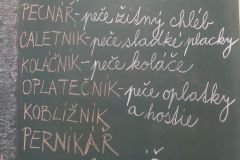 PECNÁŘ-peče žitný chléb
CALETNÍK-peče sladké placky
KOLÁČNÍK-peče koláče
OPLATEČNÍK-peče oplatky
KOBLIŽNÍK a hostie
PERNIKÁŘ